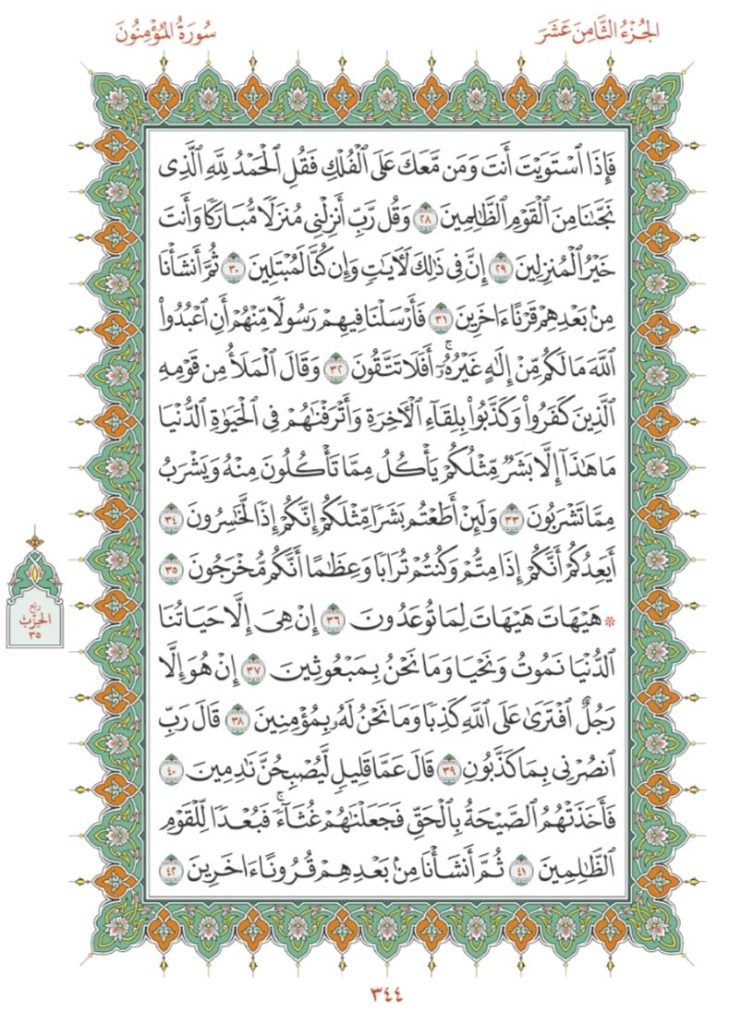 الجُزْءُ الثَّامِنَ عَشَرَ
سُورَةُ المُؤْمِنُونَ
فَإِذَا ٱسْتَوَيْتَ أَنتَ وَمَن مَّعَكَ عَلَى ٱلْفُلْكِ فَقُلِ ٱلْحَمْدُ لِلَّهِ ٱلَّذِى
نَجَّىٰنَا مِنَ ٱلْقَوْمِ ٱلظَّٰلِمِينَ ٢٨ وَقُل رَّبِّ أَنزِلْنِى مُنزَلًا مُّبَارَكًا وَأَنتَ
خَيْرُ ٱلْمُنزِلِينَ ٢٩ إِنَّ فِى ذَٰلِكَ لَءَايَٰتٍ وَإِن كُنَّا لَمُبْتَلِينَ ٣٠ ثُمَّ أَنشَأْنَا
مِنۢ بَعْدِهِمْ قَرْنًا ءَاخَرِينَ ٣١ فَأَرْسَلْنَا فِيهِمْ رَسُولًا مِّنْهُمْ أَنِ ٱعْبُدُوا۟
ٱللَّهَ مَا لَكُم مِّنْ إِلَٰهٍ غَيْرُهُۥٓ ۚ أَفَلَا تَتَّقُونَ ٣٢ وَقَالَ ٱلْمَلَأُ مِن قَوْمِهِ
ٱلَّذِينَ كَفَرُوا۟ وَكَذَّبُوا۟ بِلِقَآءِ ٱلْءَاخِرَةِ وَأَتْرَفْنَٰهُمْ فِى ٱلْحَيَوٰةِ ٱلدُّنْيَا
مَا هَٰذَآ إِلَّا بَشَرٌ مِّثْلُكُمْ يَأْكُلُ مِمَّا تَأْكُلُونَ مِنْهُ وَيَشْرَبُ
مِمَّا تَشْرَبُونَ ٣٣ وَلَئِنْ أَطَعْتُم بَشَرًا مِّثْلَكُمْ إِنَّكُمْ إِذًا لَّخَٰسِرُونَ ٣٤
أَيَعِدُكُمْ أَنَّكُمْ إِذَا مِتُّمْ وَكُنتُمْ تُرَابًا وَعِظَٰمًا أَنَّكُم مُّخْرَجُونَ ٣٥
* هَيْهَاتَ هَيْهَاتَ لِمَا تُوعَدُونَ ٣٦ إِنْ هِىَ إِلَّا حَيَاتُنَا
ٱلدُّنْيَا نَمُوتُ وَنَحْيَا وَمَا نَحْنُ بِمَبْعُوثِينَ ٣٧ إِنْ هُوَ إِلَّا
رَجُلٌ ٱفْتَرَىٰ عَلَى ٱللَّهِ كَذِبًا وَمَا نَحْنُ لَهُۥ بِمُؤْمِنِينَ ٣٨ قَالَ رَبِّ
ٱنصُرْنِى بِمَا كَذَّبُونِ ٣٩ قَالَ عَمَّا قَلِيلٍ لَّيُصْبِحُنَّ نَٰدِمِينَ ٤٠
فَأَخَذَتْهُمُ ٱلصَّيْحَةُ بِٱلْحَقِّ فَجَعَلْنَٰهُمْ غُثَآءً ۚ فَبُعْدًا لِّلْقَوْمِ
ٱلظَّٰلِمِينَ ٤١ ثُمَّ أَنشَأْنَا مِنۢ بَعْدِهِمْ قُرُونًا ءَاخَرِينَ ٤٢
ربع
الحزب
٣٥
٣٤٤